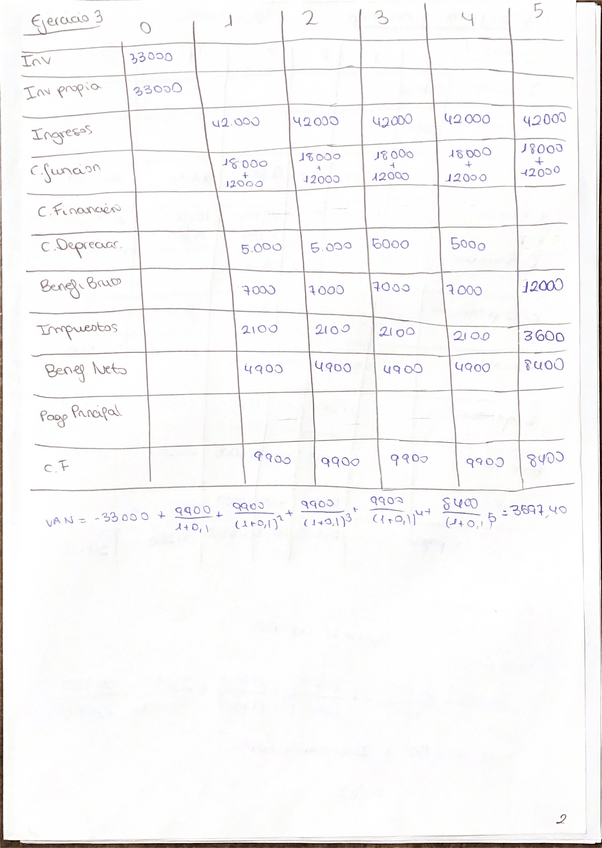 Ejercicio 3 0 1 2 3 4 5
Inv 33000
Inv propia 33000
Ingresos 42.000 42000 42000 42000 42000
C. funcion 18000 + 12000 18000 + 12000 18000 + 12000 18000 + 12000 18000 + 12000
C. Financiero
C. Depreciac. 5.000 5.000 5000 5000
Benef. Bruto 7000 7000 7000 7000 12000
Impuestos 2100 2100 2100 2100 3600
Benef Neto 4900 4900 4900 4900 8400
Pago Principal
C.F 9900 9900 9900 9900 8400
VAN = -33000 + 9900/(1+0,1) + 9900/(1+0,1)² + 9900/(1+0,1)³ + 9900/(1+0,1)⁴ + 8400/(1+0,1)⁵ = 3597,40
2